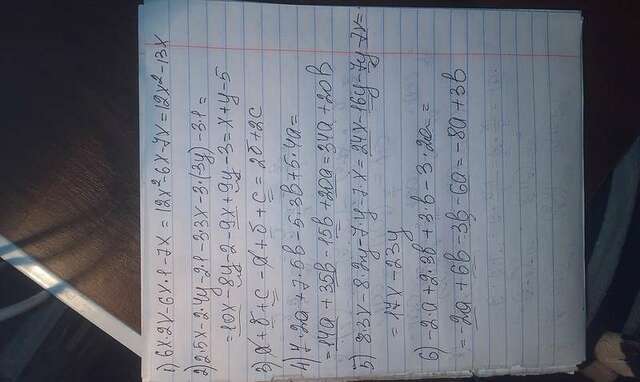 1) 6x·2x-6x·1-7x=12x²-6x-7x=12x²-13x
2) 2·5x-2·4y-2·1-3·3x-3·(3y)-3·1=
=10x-8y-2-9x+9y-3=x+y-5
3) a+b+c-a+b+c=2b+2c
4) 7·2a+7·5b-5·3b+5·4a=
=14a+35b-15b+20a=34a+20b
5) 8·3x-8·2y-7·y-7·x=24x-16y-7y-7x=
=17x-23y
6) -2·a+2·3b+3b-3·2a=
=-2a+6b-3b-6a=-8a+3b